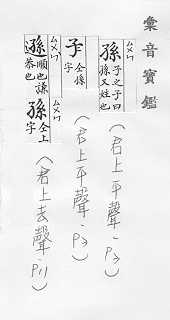 彙音寶鑑
ㄙㄨㄣ
孫 子之子曰孫又姓也
(君上平聲, P3)
仝孫字
(君上平聲, P3)
ㄙㄨㄣˋ
孫 仝上字
遜 順也謙恭也
(君上去聲, P11)